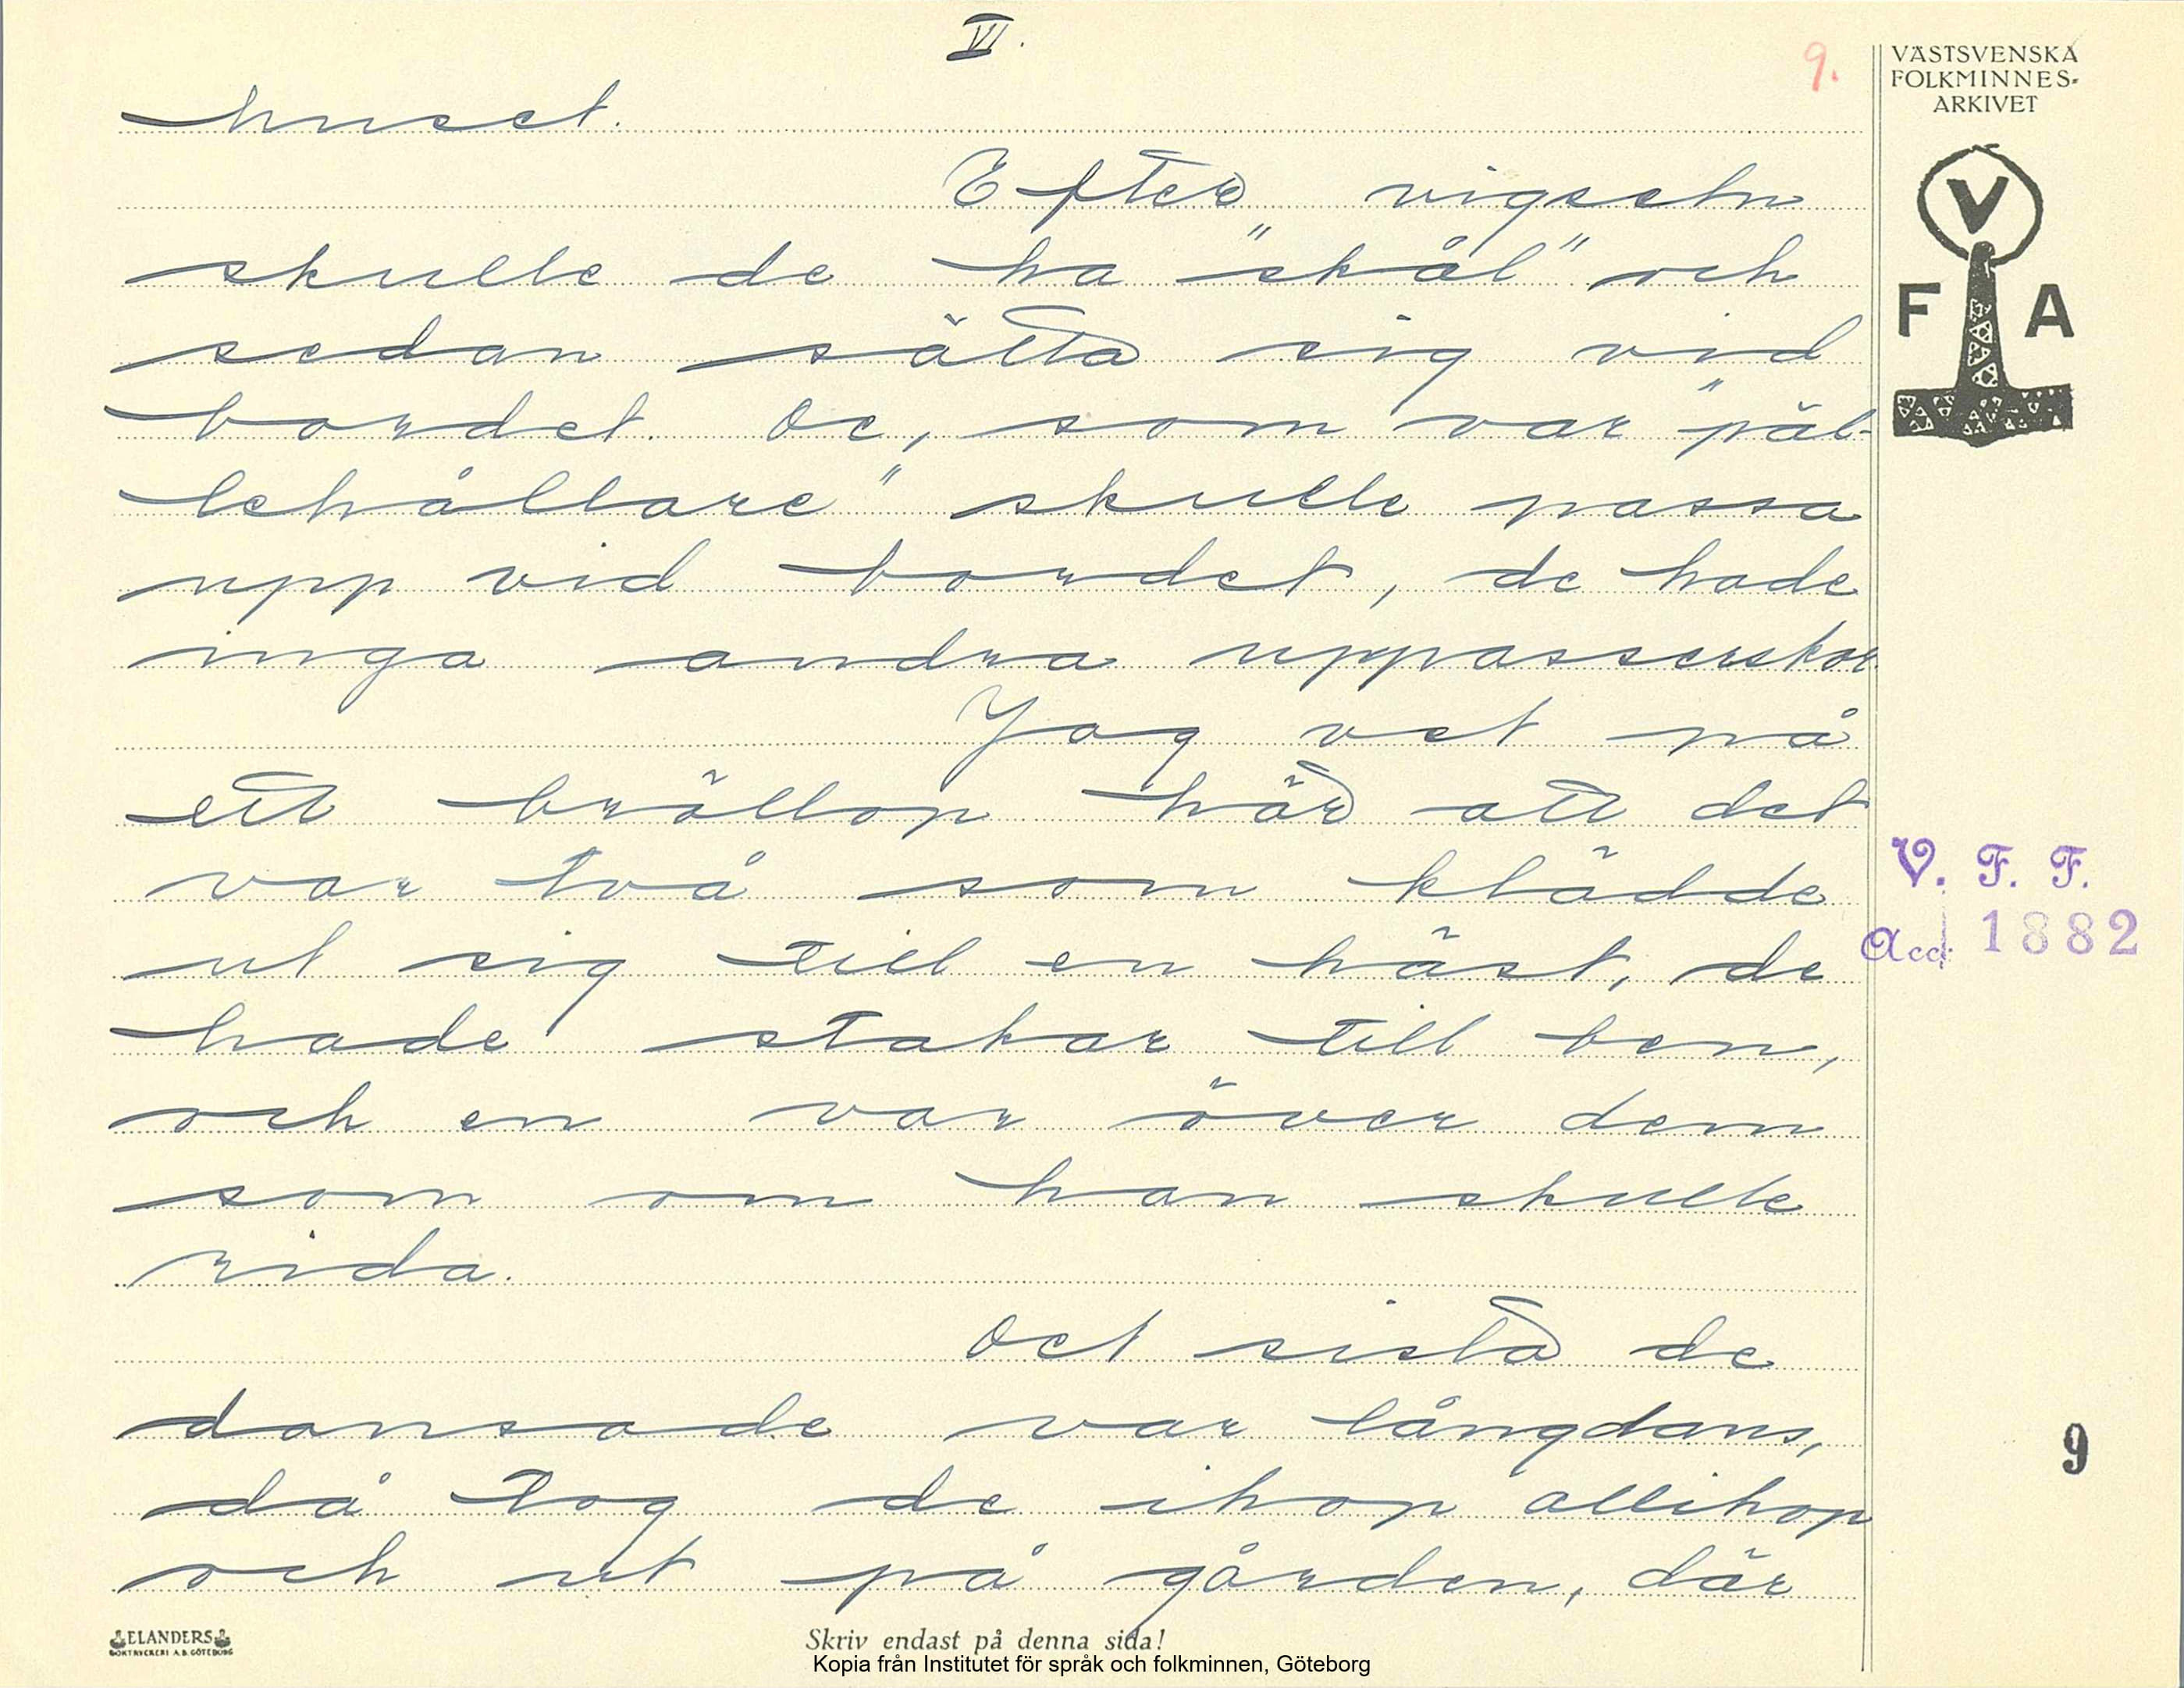 VI.
9.
VÄSTSVENSKA
FOLKMINNES-
ARKIVET
V
F A
huset.
Efter vigseln
skulle de ha "skål" och
sedan sätta sig vid
bordet. De, som var "päl-
lehållare" skulle passa
upp vid bordet, de hade
inga andra uppasserskor.
Jag vet på
ett bröllop här att det
var två som klädde
ut sig till en häst, de
hade stakar till ben,
och en var över dem
som om han skulle
rida.
Det sista de
dansade var långdans,
då tog de ihop allihop
och ut på gården, där
V. F. F.
Acc. 1882
9
ELANDERS
BOKTRYCKERI A.B. GÖTEBORG
Skriv endast på denna sida!
Kopia från Institutet för språk och folkminnen, Göteborg